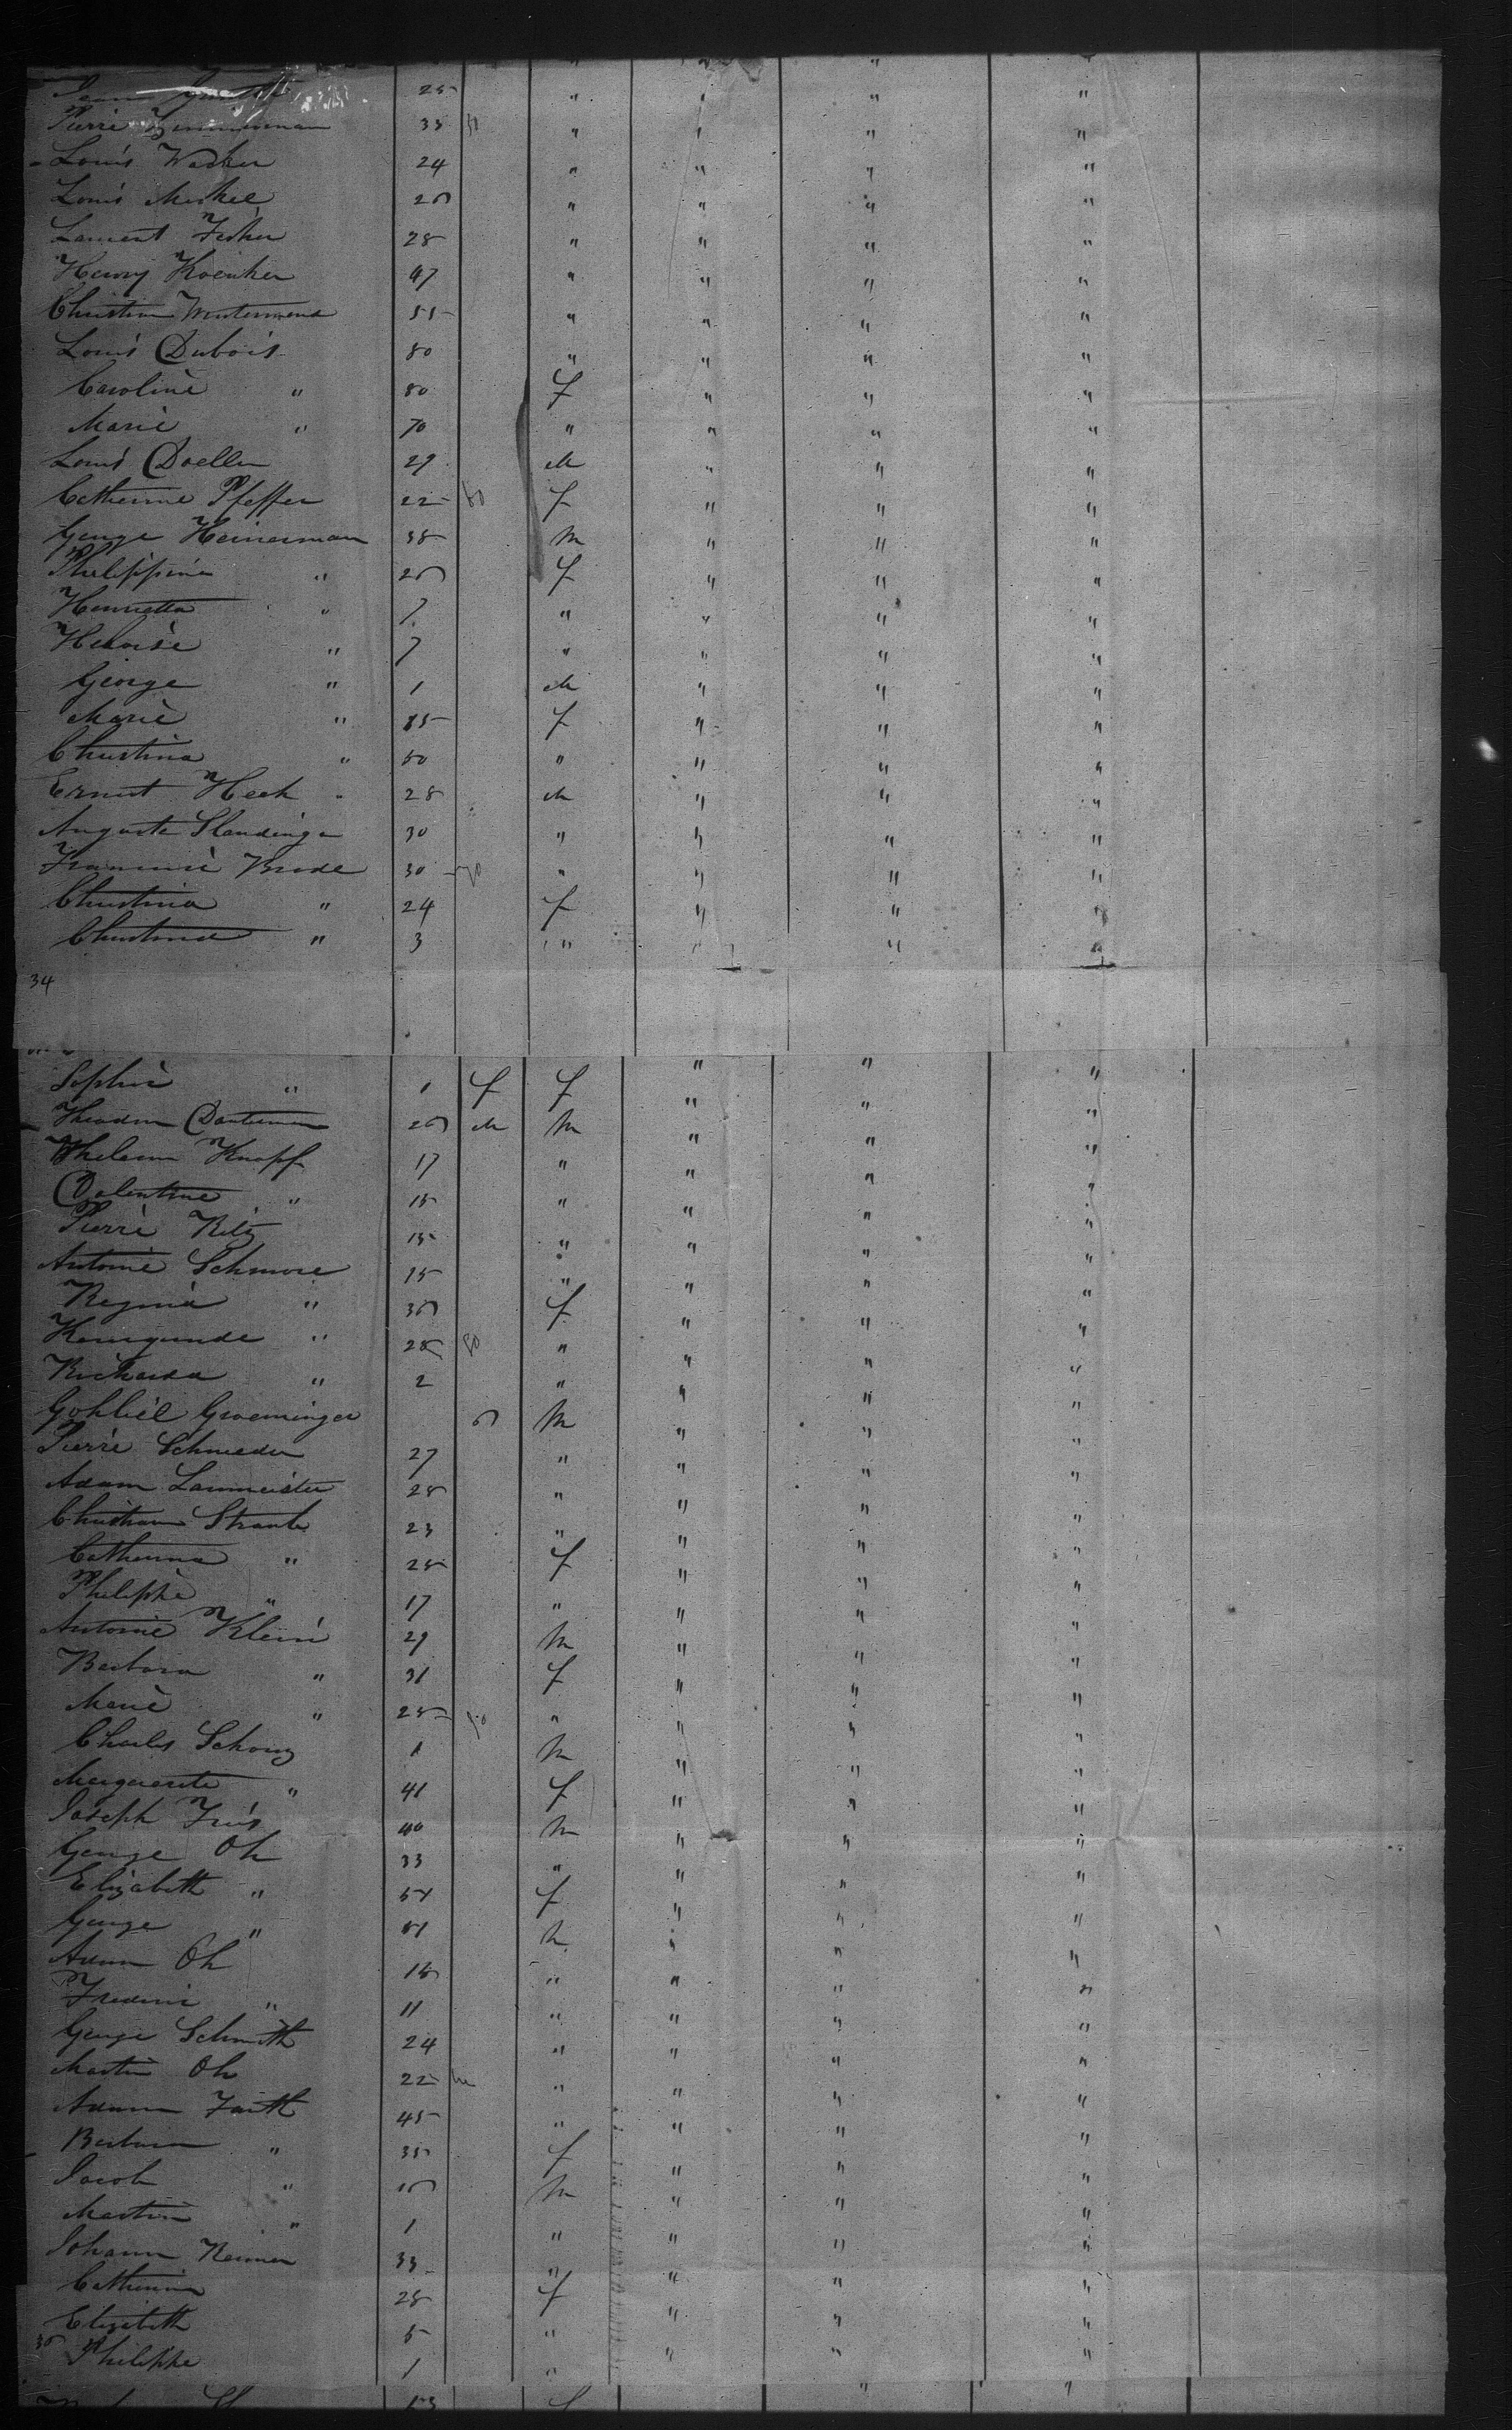 25 " " " "
Pierre Zimmerman 33 50 " " " "
Louis Wacker 24 " " " "
Louis Merkel 26 " " " "
Laurent Fisher 28 " " " "
Henry Koenker 47 " " " "
Christian 55 " " " "
Louis Dubois 80 " " " "
Caroline " 80 f " " "
Marie " 70 " " " "
Louis Doeller 29 M " " "
Catherine Pfeffer 22 60 f " " "
George Heinerman 38 M " " "
Philippine " 26 f " " "
Henrietta " 7 " " " "
Heloise " 7 " " " "
George " 1 M " " "
Marie " 15 f " " "
Christina " 50 " " " "
Ernest Heck 28 M " " "
Auguste Slandinger 30 " " " "
Brode 30 70 " " " "
Christina " 24 f " " "
Christina " 3 " " " "
34
Sophie " 1 f f " " "
26 M M " " "
Knopf 17 " " " "
Valentine " 15 " " " "
Pierre Ritz 15 " " " "
Antoine Schmore 15 " " " "
Regina " 36 f " " "
Kunigunde " 28 80 " " " "
Richarda " 2 " " " "
Gohliel Groeminger 6 M " " "
Pierre Schneider 27 " " " "
Adam Laumeister 28 " " " "
Christian Straub 23 " " " "
Catherina " 28 f " " "
Philippe " 17 " " " "
Antoine Klein 29 M " " "
Barbara " 31 f " " "
Marie " 28 90 " " " "
Charles Schong 1 M " " "
Marguerite " 41 f " " "
Joseph Fries 40 M " " "
George Oh 33 " " " "
Elizabeth " 54 f " " "
George " M " " "
Adam Oh 16 " " " "
Frederic " 11 " " " "
George Schmith 24 " " " "
Martin Oh 22 " " " "
Adam Faith 45 " " " "
Barbara " 35 f " " "
Jacob " 16 M " " "
Martin " 1 " " " "
Johann Reimer 33 " " " "
Catherine 28 f " " "
Elizabeth 5 " " " "
36 Philippe 1 " " " "
13 f " "